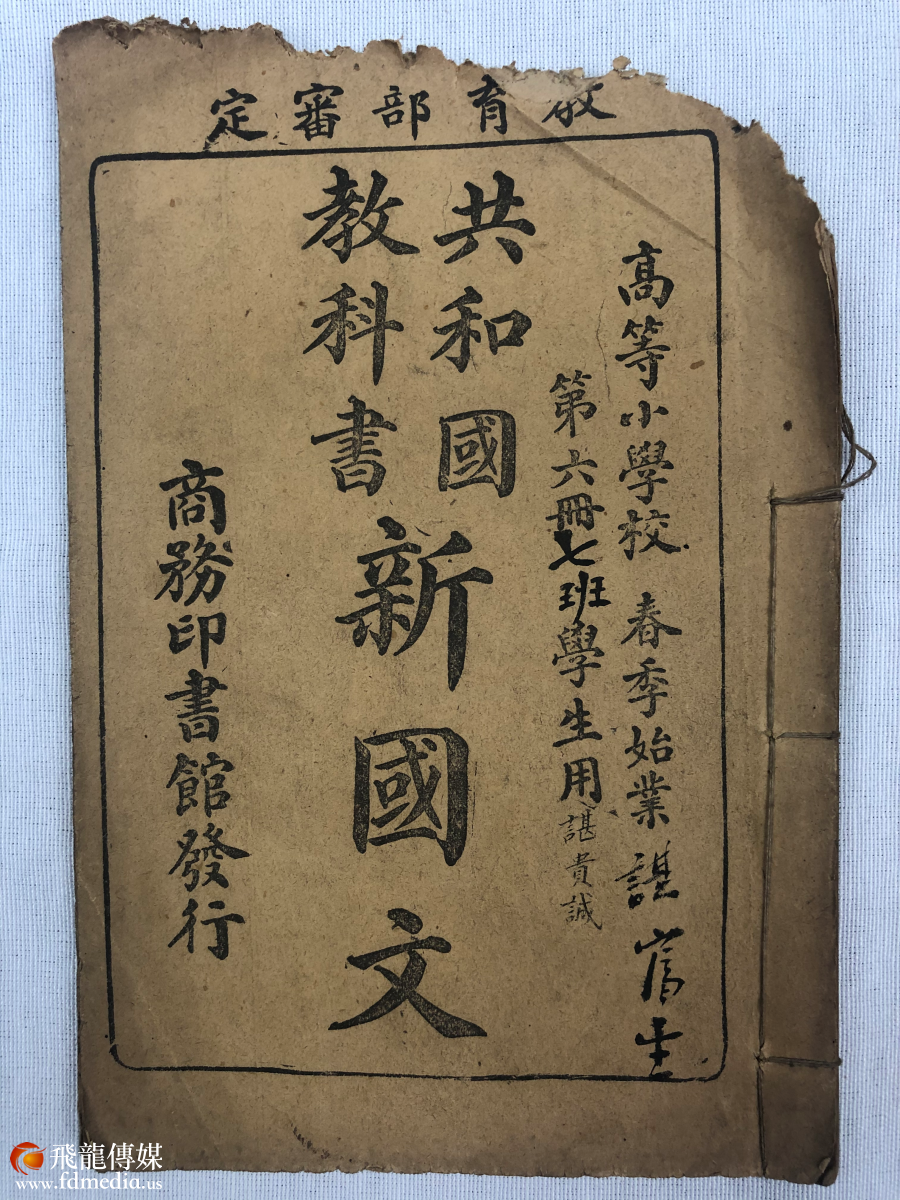 教育部審定
高等小學校 春季始業 諶
第六冊七班學生用諶貴誠
共和國
教科書
新國文
商務印書館發行
飛龍傳媒
www.fdmedia.us